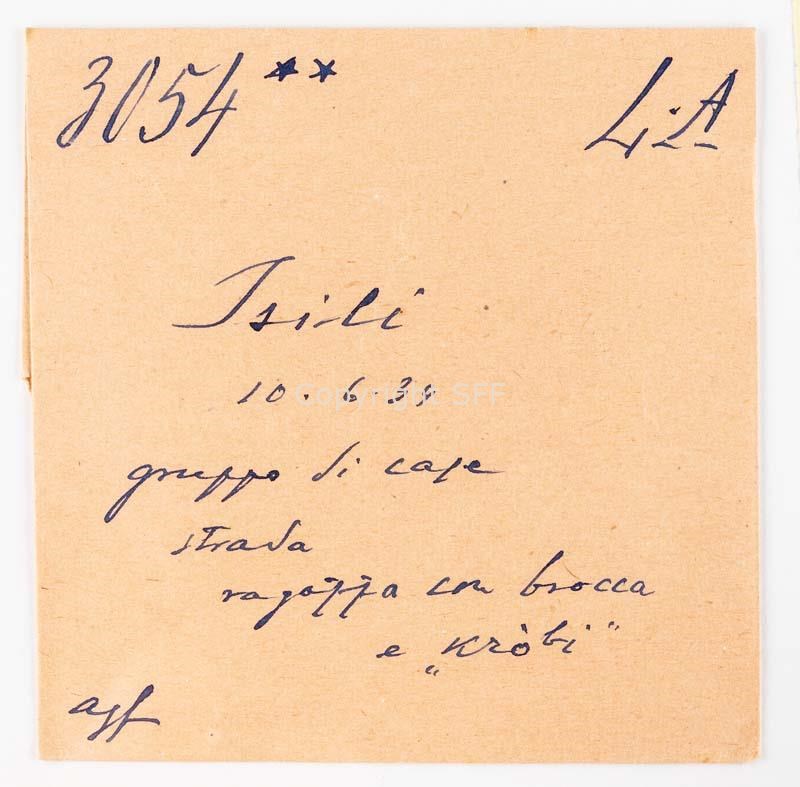 3054 ** L.A
Isili
10.6.38
Copyright SFF
gruppo di case
strada
ragazza con brocca
e „kròbi"
agf